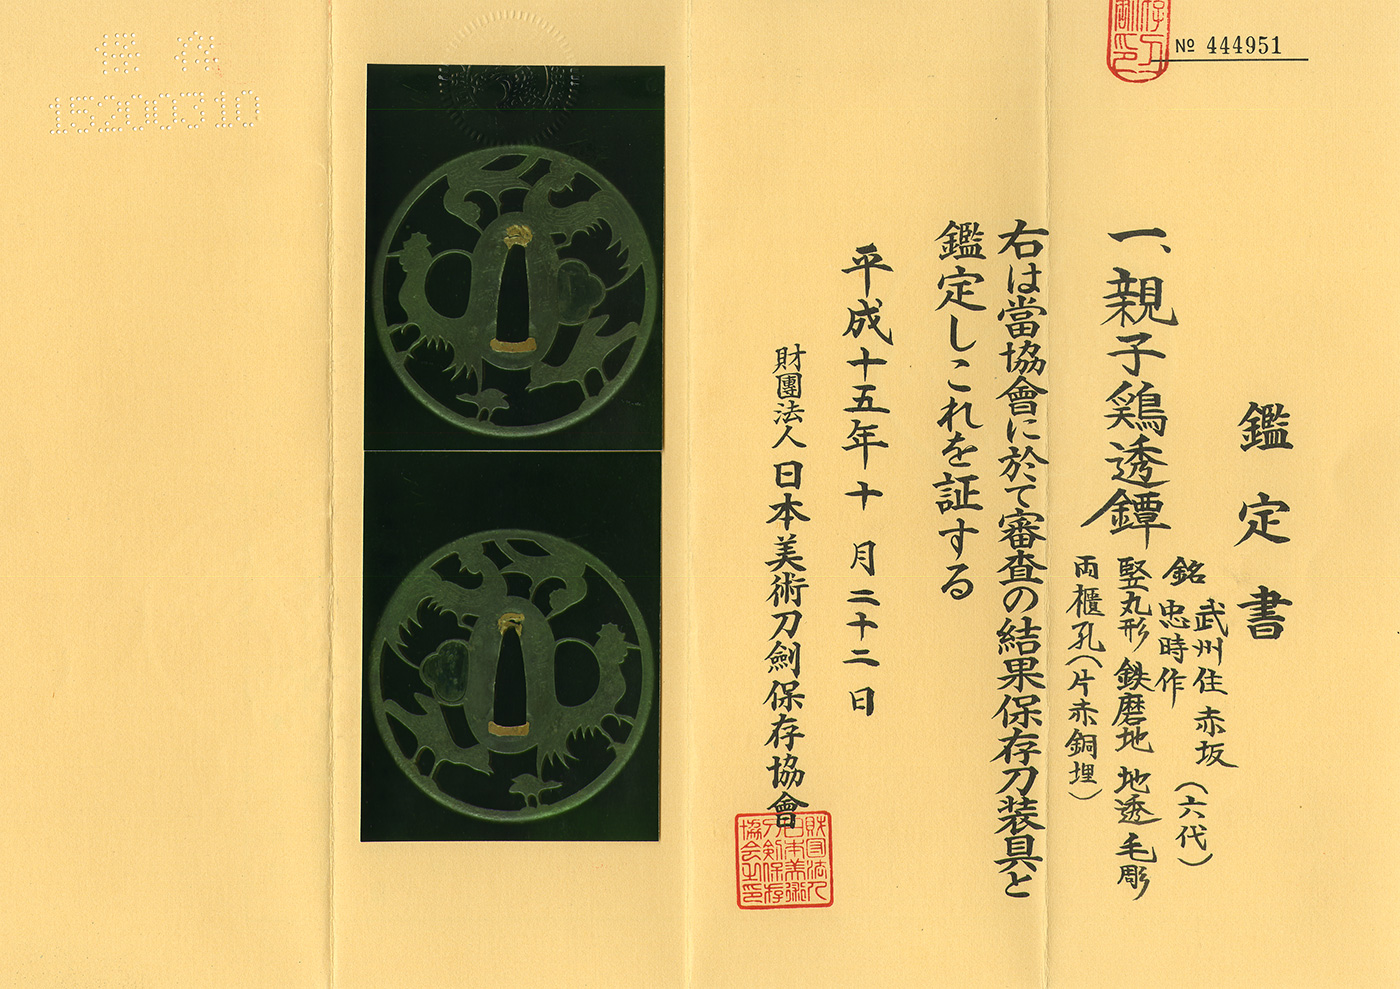 № 444951
鑑定書
一、親子鶏透鐔
銘 武州住赤坂
忠時作 (六代)
竪丸形 鉄磨地 地透 毛彫
両櫃孔(片赤銅埋)
右は當協會に於て審査の結果保存刀装具と
鑑定しこれを証する
平成十五年十月二十二日
財團法人 日本美術刀劍保存協會
財団法人
日本美術
刀剣保存
協会之印
保存
15200310